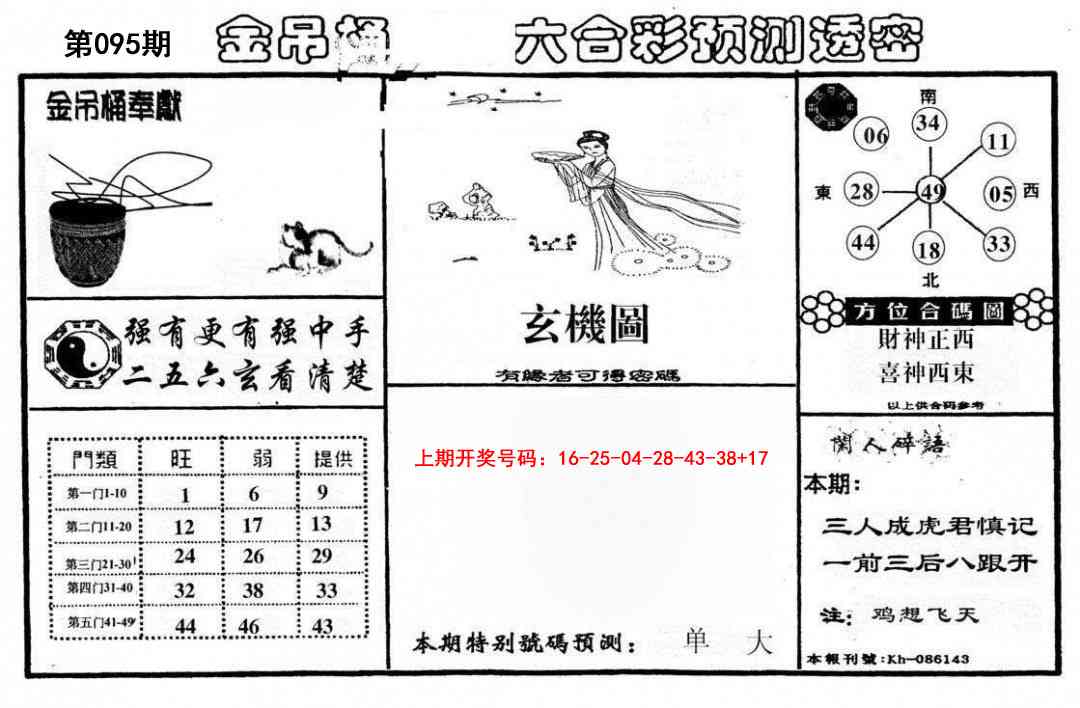 第095期
金吊桶 六合彩预测透密
金吊桶奉獻
强有更有强中手
二五六玄看清楚
門類 旺 弱 提供
第一门1-10 1 6 9
第二门11-20 12 17 13
第三门21-30 24 26 29
第四门31-40 32 38 33
第五门41-49 44 46 43
玄機圖
有緣者可得密碼
上期开奖号码：16-25-04-28-43-38+17
本期特别號碼预测： 单 大
南
34
06
11
東 28 49 05 西
44 18 33
北
方位合碼圖
財神正西
喜神西東
以上供合码参考
閑人碎語
本期：
三人成虎君慎记
一前三后八跟开
注：鸡想飞天
本報刊號:Kh-086143